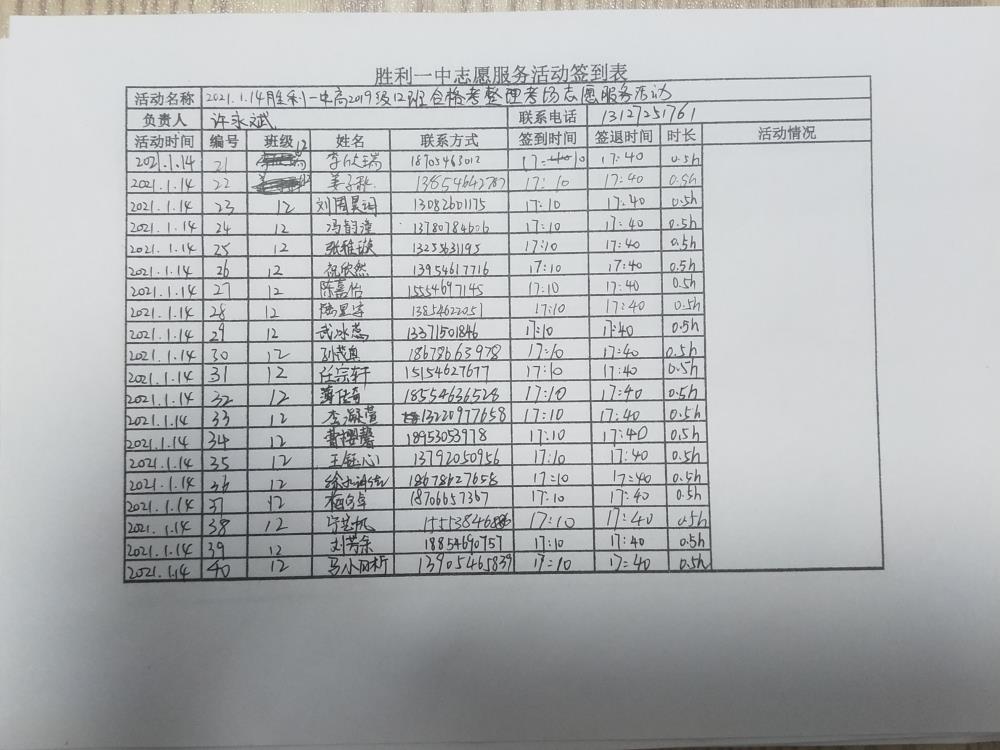 胜利一中志愿服务活动签到表
活动名称 2021.1.14胜利一中高2019级12班合格考整理考场志愿服务活动
负责人 许永斌 联系电话 13127251761
活动时间 编号 班级 姓名 联系方式 签到时间 签退时间 时长 活动情况
2021.1.14 21 12 李欣瑞 18705463012 17:10 17:40 0.5h
2021.1.14 22 12 姜子秋 13854642787 17:10 17:40 0.5h
2021.1.14 23 12 刘周昊润 13082601175 17:10 17:40 0.5h
2021.1.14 24 12 冯韵潼 13780784606 17:10 17:40 0.5h
2021.1.14 25 12 张雅璇 13255631195 17:10 17:40 0.5h
2021.1.14 26 12 祝欣然 13954617716 17:10 17:40 0.5h
2021.1.14 27 12 陈嘉怡 15554697145 17:10 17:40 0.5h
2021.1.14 28 12 13854622051 17:10 17:40 0.5h
2021.1.14 29 12 武冰蕊 13371501846 17:10 17:40 0.5h
2021.1.14 30 12 18678663978 17:10 17:40 0.5h
2021.1.14 31 12 任宗轩 15154627677 17:10 17:40 0.5h
2021.1.14 32 12 薄传奇 18554636528 17:10 17:40 0.5h
2021.1.14 33 12 李凝萱 13220977658 17:10 17:40 0.5h
2021.1.14 34 12 曹樱馨 18953053978 17:10 17:40 0.5h
2021.1.14 35 12 王钰心 13792050956 17:10 17:40 0.5h
2021.1.14 36 12 18678627658 17:10 17:40 0.5h
2021.1.14 37 12 18706657367 17:10 17:40 0.5h
2021.1.14 38 12 17:10 17:40 0.5h
2021.1.14 39 12 刘芳余 18854690757 17:10 17:40 0.5h
2021.1.14 40 12 马小冈析 13905465839 17:10 17:40 0.5h